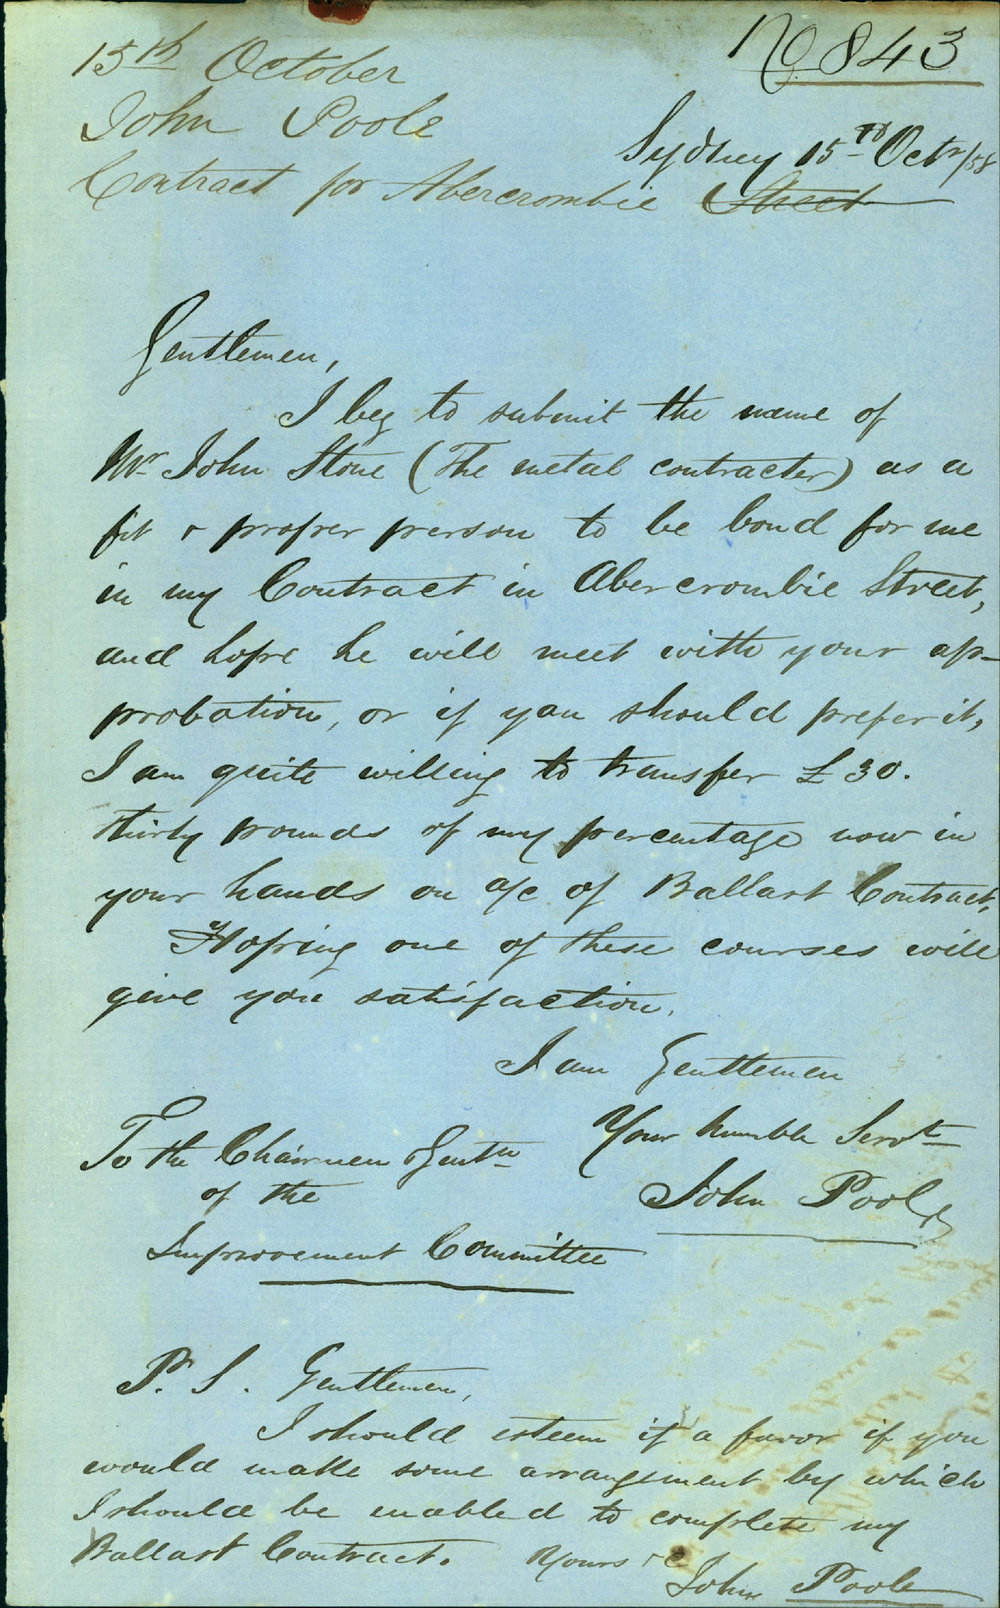 No 843
15th October
John Poole
Contract for Abercrombie Street
Sydney 15th Octr/58
Gentlemen,
I beg to submit the name of
Mr John Stone (The metal contracter) as a
fit & proper person to be bond for me
in my Contract in Abercrombie Street,
and hope he will meet with your ap-
probation, or if you should prefer it,
I am quite willing to transfer £30.
thirty pounds of my percentage now in
your hands on a/c of Ballast Contract,
Hoping one of these courses will
give you satisfaction.
I am Gentlemen
Your humble Servt
John Poole
To the Chairmen & Gentn
of the
Improvement Committee
P. S. Gentlemen,
I should esteem it a favor if you
would make some arrangement by which
I should be enabled to complete my
Ballast Contract. Yours &c
John Poole